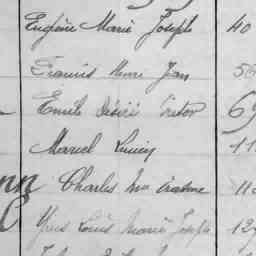 Eugène Marie Joseph 40
Francis Henri Jean 5
Emile Désiré Victor 6
Marcel Lucien 11
Charles Mie 11
Yves Louis Marie Joseph 12